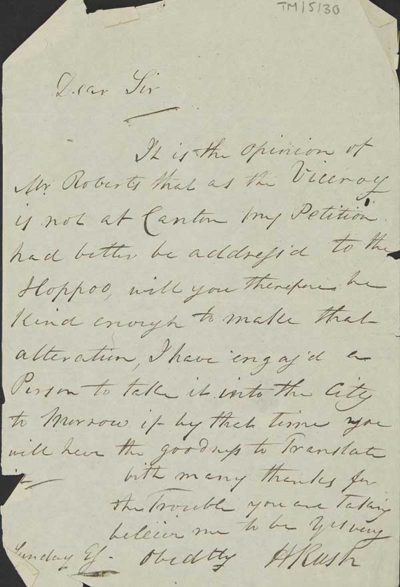 TM/5/30
Dear Sir
It is the opinion of
Mr. Roberts that as the Viceroy
is not at Canton my Petition
had better be address'd to the
Hoppoo, will you therefore be
kind enough to make that
alteration, I have engag'd a
Person to take it into the City
to Morrow if by that time you
will have the goodness to Translate
it
with many thanks for
the Trouble you are taking
believe me to be Yrs very
Sunday Eg. Obedtly